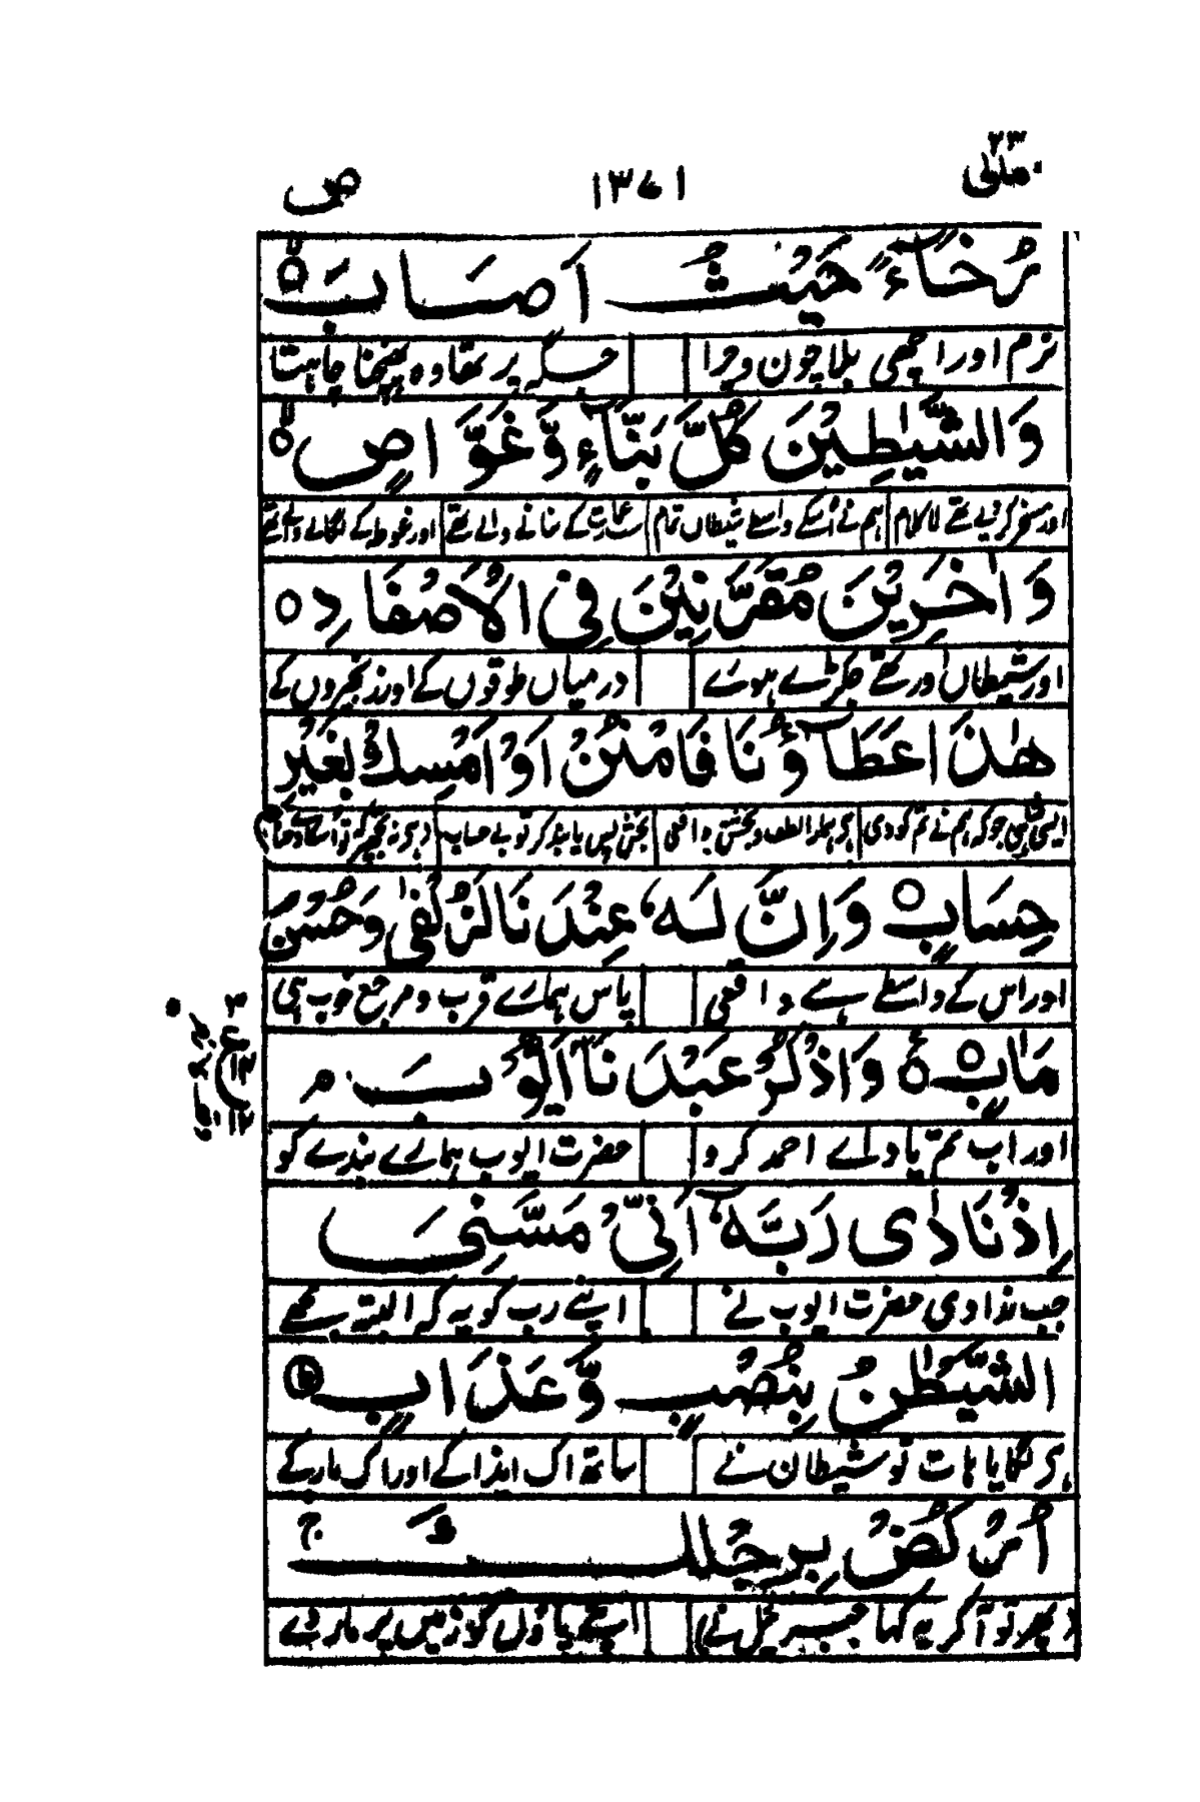 ومالی ۲۳
۱۳۷۱
ص
رُخَآءً حَیْثُ اَصَابَ ۙ
نرم اور اچھی بلا چون و چرا جس جگہ پر تھا وہ پہنچنا چاہتا
وَالشَّیٰطِیْنَ کُلَّ بَنَّآءٍ وَّغَوَّاصٍ ۙ
اور مسخر کر دیے تھے لا کلام ہم نے اسکے واسطے شیطاں تمام عمارت کے بنانے والے تھے اور غوطہ کے لگانے والے تھے
وَاٰخَرِیْنَ مُقَرَّنِیْنَ فِی الْاَصْفَادِ ○
اور شیطاں اور تھے جکڑے ہوئے درمیاں طوقوں کے اور زنجیروں کے
هٰذَا عَطَآؤُنَا فَامْنُنْ اَوْ اَمْسِكْ بِغَیْرِ
جو کہ ہم نے تم کو دی ہے ہمارا لطف و بخشش واقعی بخش پس یا بند کر تو بے حساب
حِسَابٍ ○ وَاِنَّ لَهٗ عِنْدَنَا لَزُلْفٰی وَحُسْنَ
اور اس کے واسطے ہے واقعی پاس ہمارے قرب و مرجع خوب ہی
مَاٰبٍ ○ وَاذْكُرْ عَبْدَنَاۤ اَیُّوْبَ ۘ
اور اب تم یاد لے احمد کرو حضرت ایوب ہمارے بندے کو
اِذْ نَادٰی رَبَّهٗۤ اَنِّیْ مَسَّنِیَ
جب ندا دی حضرت ایوب نے اپنے رب کو یہ کہ البتہ ہے مجھے
الشَّیْطٰنُ بِنُصْبٍ وَّعَذَابٍ ؕ
ہی لگایا ہات تو شیطان نے ساتھ اک ایذا کے اور اک مار کے
اُرْكُضْ بِرِجْلِكَ ۚ
پھر تو آ کر یہ کہا جبرئیل نے) اپنے پاؤں کو زمیں پر مار دے